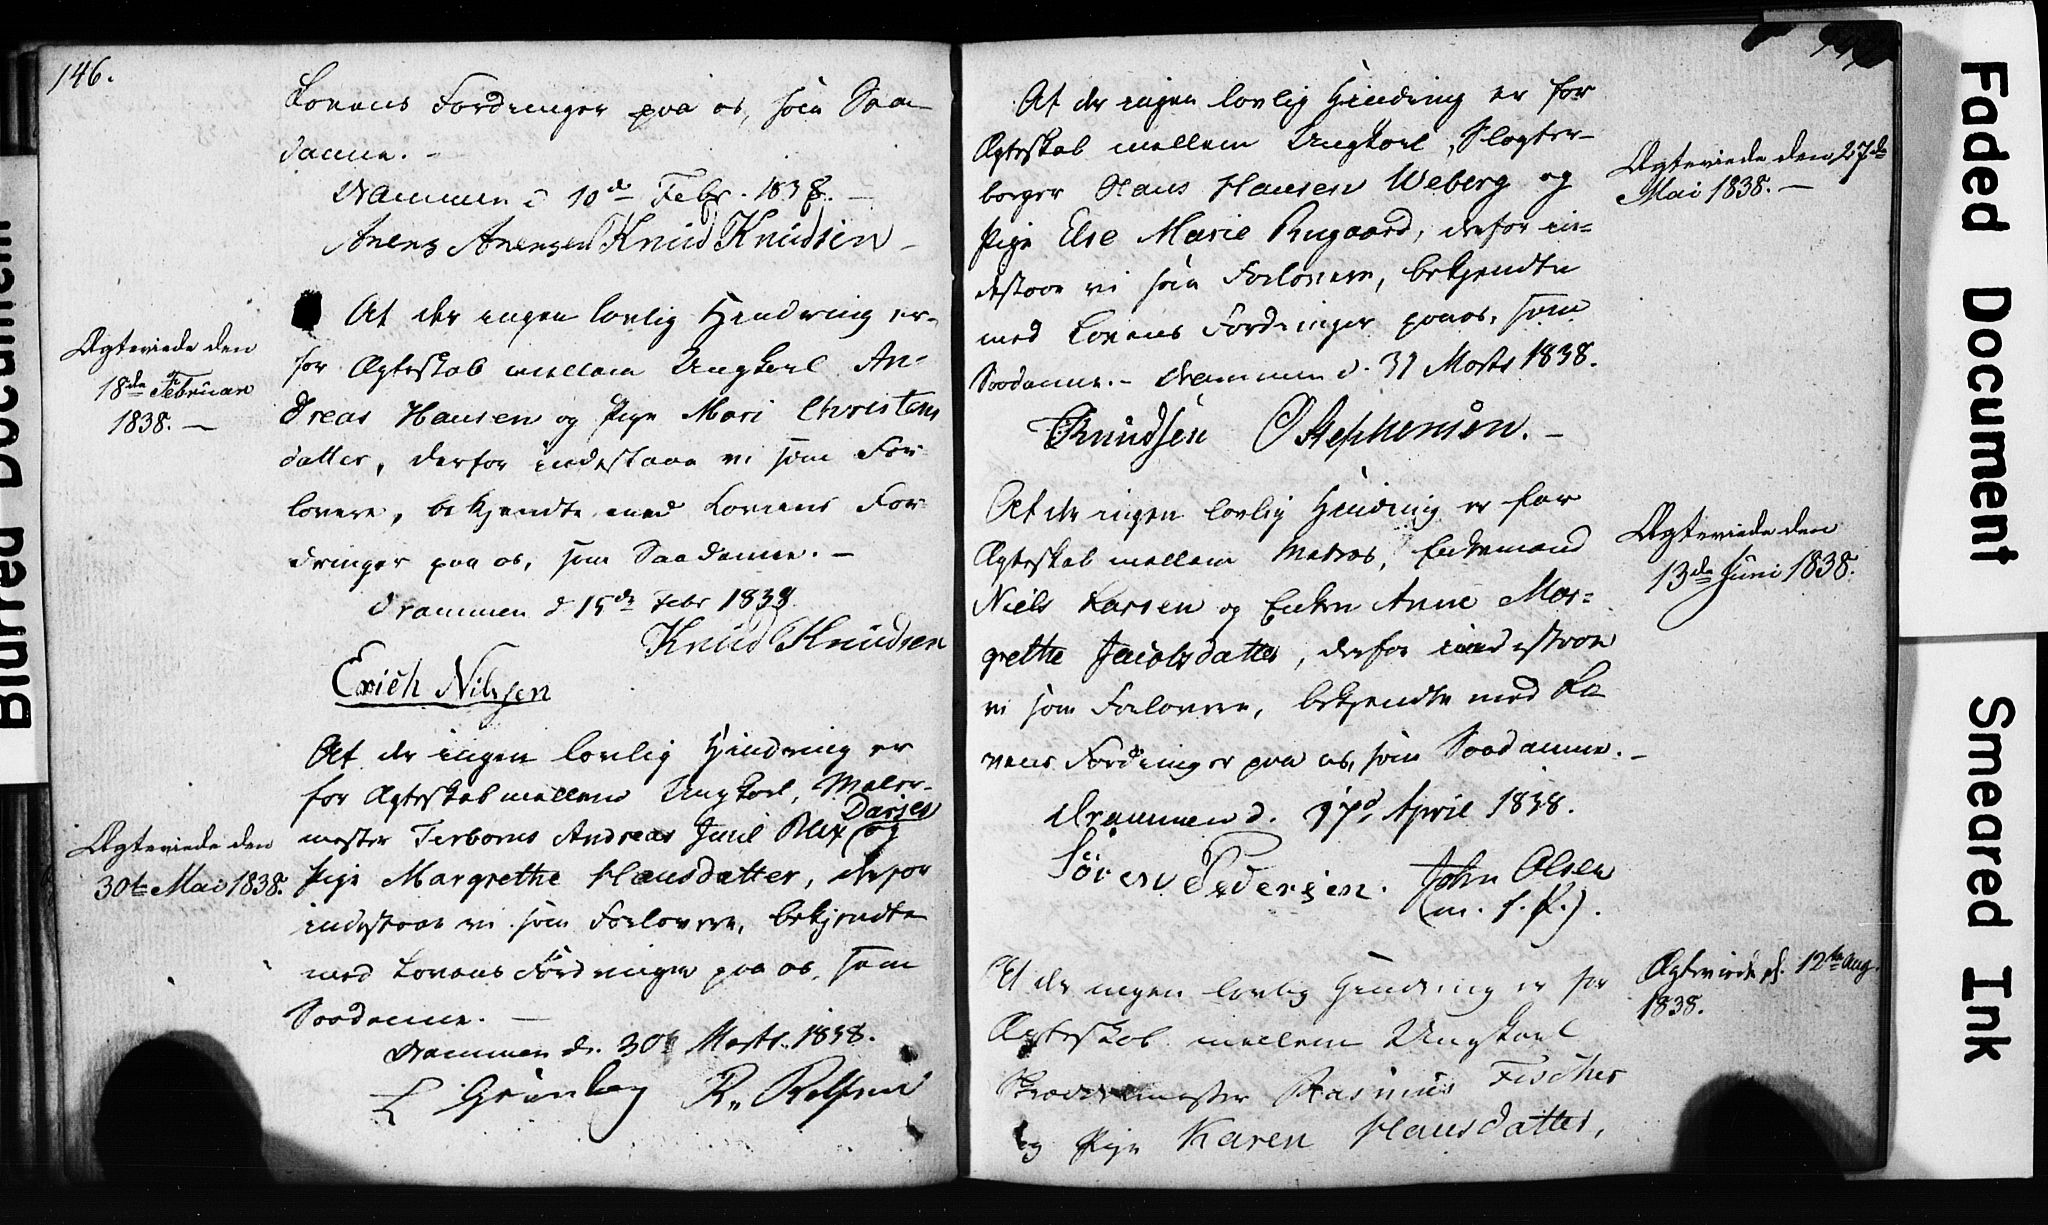 146.
Lovens Fordringer paa os, som Saa-
danne. -
Drammen d 10de Febr. 1838. -
Anens Anensen Knud Knudsen -
At der ingen lovlig Hindring er-
Ægteviede den
for Ægteskab mellem Ungkarl An-
18de Februar
dreas Hansen og Pige Mari Christens
1838. -
datter, derfor indestaae vi som For-
lovere, bekjendte med Lovens For-
dringer paa os, som Saadanne. -
Drammen d 15de Febr 1838.
Knud Knudsen
Erich Nilsen
At der ingen lovlig Hindring er
for Ægteskab mellem Ungkarl, Maler-
Darjes
mester Andreas Juul Blix (og
Ægteviede den
Pige Margrethe Hansdatter, derfor
30te Mai 1838.
indestaae vi som Forlovere, bekjendte
med Lovens Fordringer paa os, som
Saadanne. -
Drammen d. 30te Marts. 1838.
At der ingen lovlig Hindring er for
Ægteskab mellem Ungkarl, Slagter-
Ægteviede den 27de
borger Hans Hansen Weberg og
Mai 1838. -
Pige Else Marie Rugaard, derfor in-
destaae vi som Forlovere, bekjendte
med Lovens Fordringer paa os, som
Saadanne. - Drammen d. 31 Marts 1838.
Knudsen O Stephensen. -
At der ingen lovlig Hindring er for
Ægteskab mellem Matros, Enkemand
Ægteviede den
Niels Larsen og Enken Anne Mar-
13de Juni 1838.
grethe Jacobsdatter, derfor indestaae
vi som Forlovere, bekjendte med Lo-
vens Fordringer paa os, som Saadanne. -
Drammen d. 17d. April 1838.
Sören Pedersen. John Olsen
(m. f. P.).
At der ingen lovlig Hindring er for
Ægteviede d. 12te Aug.
1838.
Ægteskab mellem Ungkarl
Skrædermester Rasmus Fischer
og Pige Karen Hansdatter,
Faded Document
Smeared Ink
Blurred Document